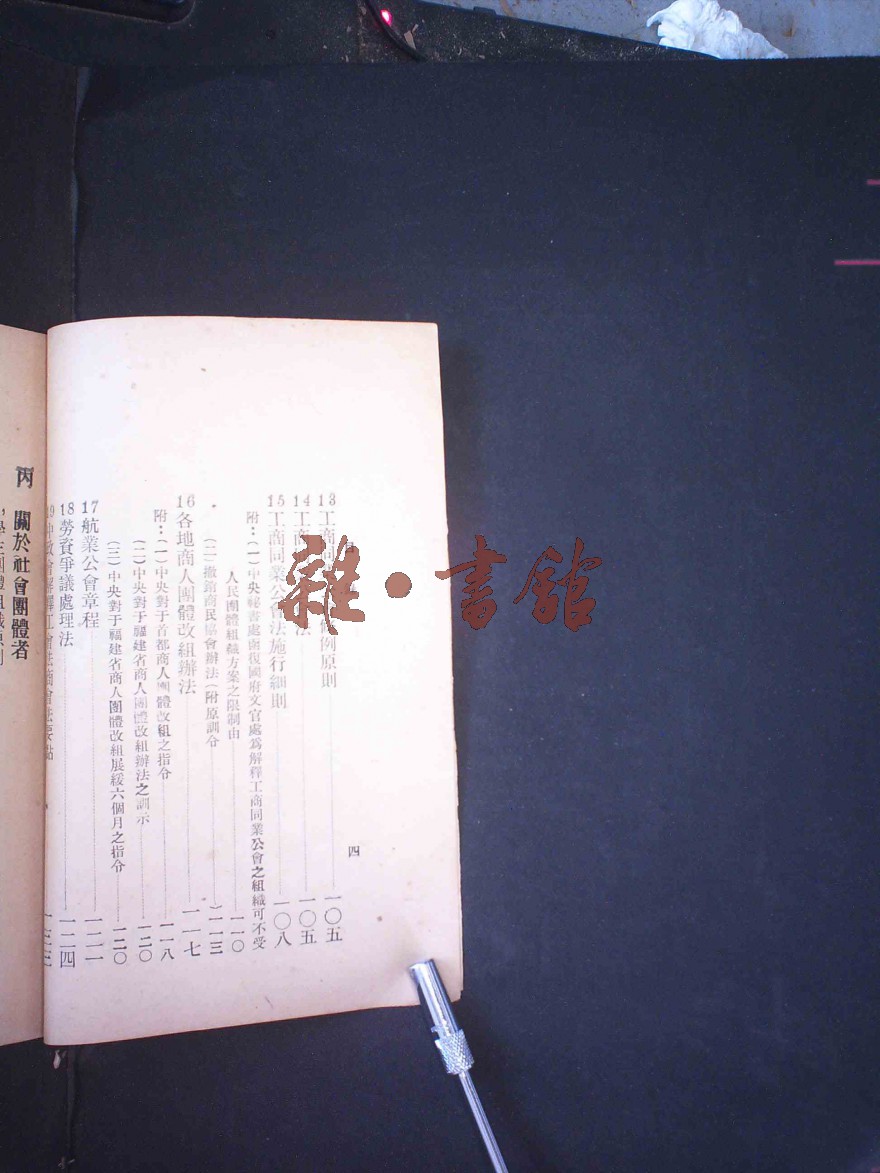 目
四
13工商同 例原則……一〇五
14工商 法……一〇五
15工商同業公 法施行細則……一〇八
附：(一)中央祕書處函復國府文官處爲解釋工商同業公會之組織可不受
人民團體組織方案之限制由……一一〇
(二)撤銷商民協會辦法(附原訓令)……一一三
16各地商人團體改組辦法……一一七
附：(一)中央對于首都商人團體改組之指令……一一八
(二)中央對于福建省商人團體改組辦法之訓示……一二〇
(三)中央對于福建省商人團體改組展緩六個月之指令……一二〇
17航業公會章程……一二一
18勞資爭議處理法……一二四
19 解釋工會法商會法要點……一三三
丙 關於社會團體者
學生團體組織原則
雜·書館